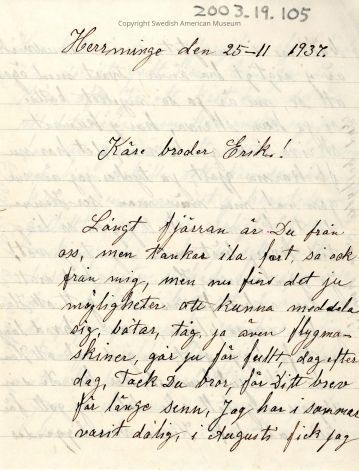 2003.19.105
Copyright Swedish American Museum
Herrminge den 25-11 1937.
Käre broder Erik!
Långt fjärran är Du från
oss, men tankar ila fort, så ock
från mig, men nu fins det ju
möjligheter att kunna meddela
sig, båtar, tåg, ja även flygma-
skiner, går ju för fullt, dag efter
dag, Tack Du bror, för Ditt brev
för länge senn, Jag har i sommar
varit dålig, i Augusti fick jag